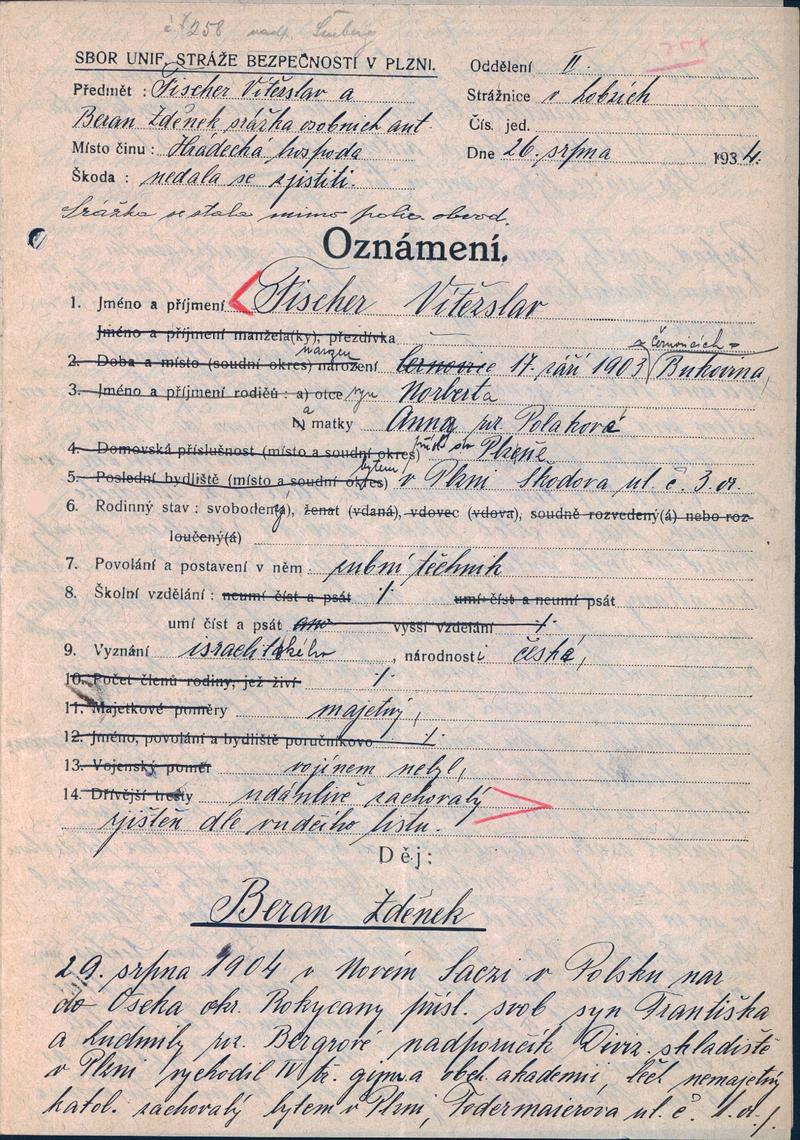 č 258 nadp.
258
SBOR UNIF. STRÁŽE BEZPEČNOSTI V PLZNI.
Oddělení II.
Předmět : Fischer Vítězslav a
Strážnice v Lobzích
Beran Zdeněk srážka osobních aut.
Čís. jed.
Místo činu : Hrádecká hospoda
Dne 26. srpna 1934.
Škoda : nedala se zjistiti.
Srážka se stala mimo polic. obvod.
Oznámení.
1. Jméno a příjmení Fischer Vítězslav
Jméno a příjmení manžela(ky), přezdívka
v Černovicích
2. Doba a místo (soudní okres) narození narozen Černovice 17. září 1903 Bukovina,
3. Jméno a příjmení rodičů : a) otce syn Norberta
a matky Anny roz. Polakové
4. Domovská příslušnost (místo a soudní okres) přísl. do Plzně
5. Poslední bydliště (místo a soudní okres) bytem v Plzni Škodova ul. č. 3 or.
6. Rodinný stav : svobodený, ženat (vdaná), vdovec (vdova), soudně rozvedený(á) nebo roz-
loučený(á)
7. Povolání a postavení v něm : zubní technik
8. Školní vzdělání : neumí číst a psát ⁒ umí číst a neumí psát
umí číst a psát ano vyšší vzdělání ⁒
9. Vyznání israelitského, národnosti české,
10. Počet členů rodiny, jež živí ⁒
11. Majetkové poměry majetný,
12. Jméno, povolání a bydliště poručníkovo ⁒
13. Vojenský poměr vojínem nebyl,
14. Dřívější tresty udánlivě zachovalý
zjištěn dle vůdčího listu.
Děj:
Beran Zdeněk
29. srpna 1904 v Novém Saczi v Polsku nar
do Oseka okr. Rokycany přísl. svob syn Františka
a Ludmily roz. Bergrové nadporučík Diviz. skladiště
v Plzni vychodil IV tř. gymn. a obch. akademii, leč. nemajetný
katol. zachovalý bytem v Plzni, Fodermaierova ul. č. 1. or.